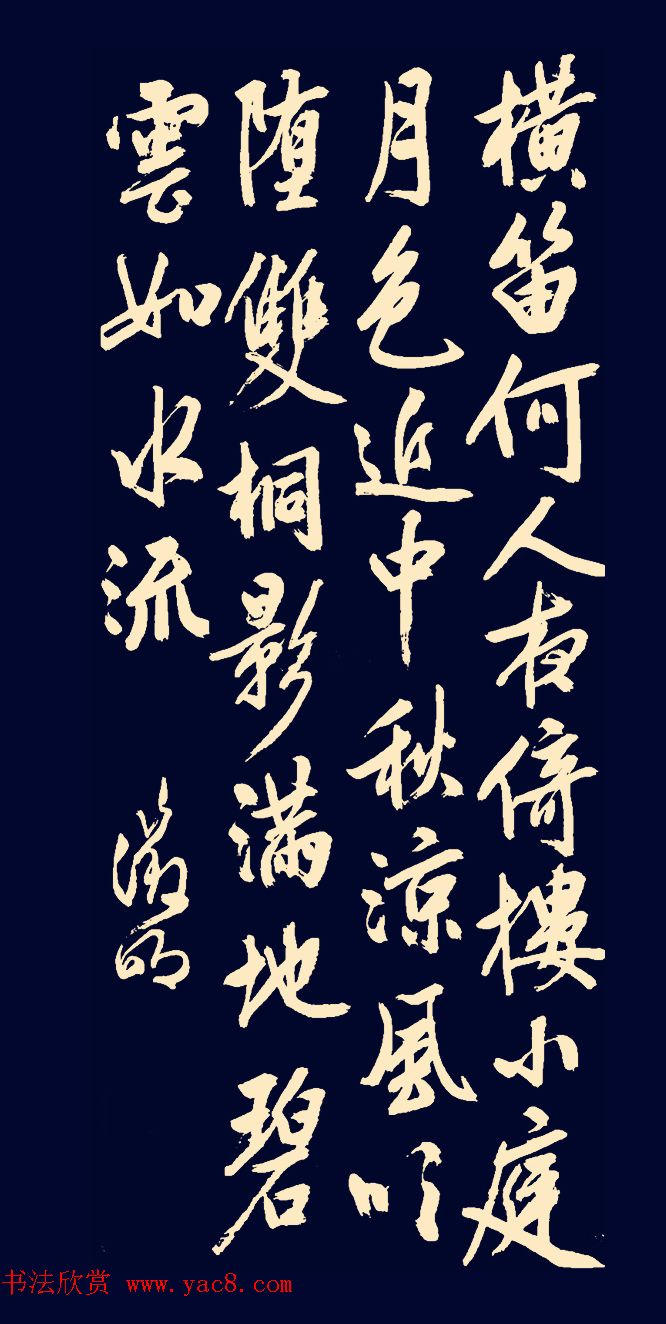 橫笛何人夜倚樓小庭
月色近中秋涼風吹
堕雙桐影滿地碧
雲如水流
徵明
书法欣赏 www.yac8.com